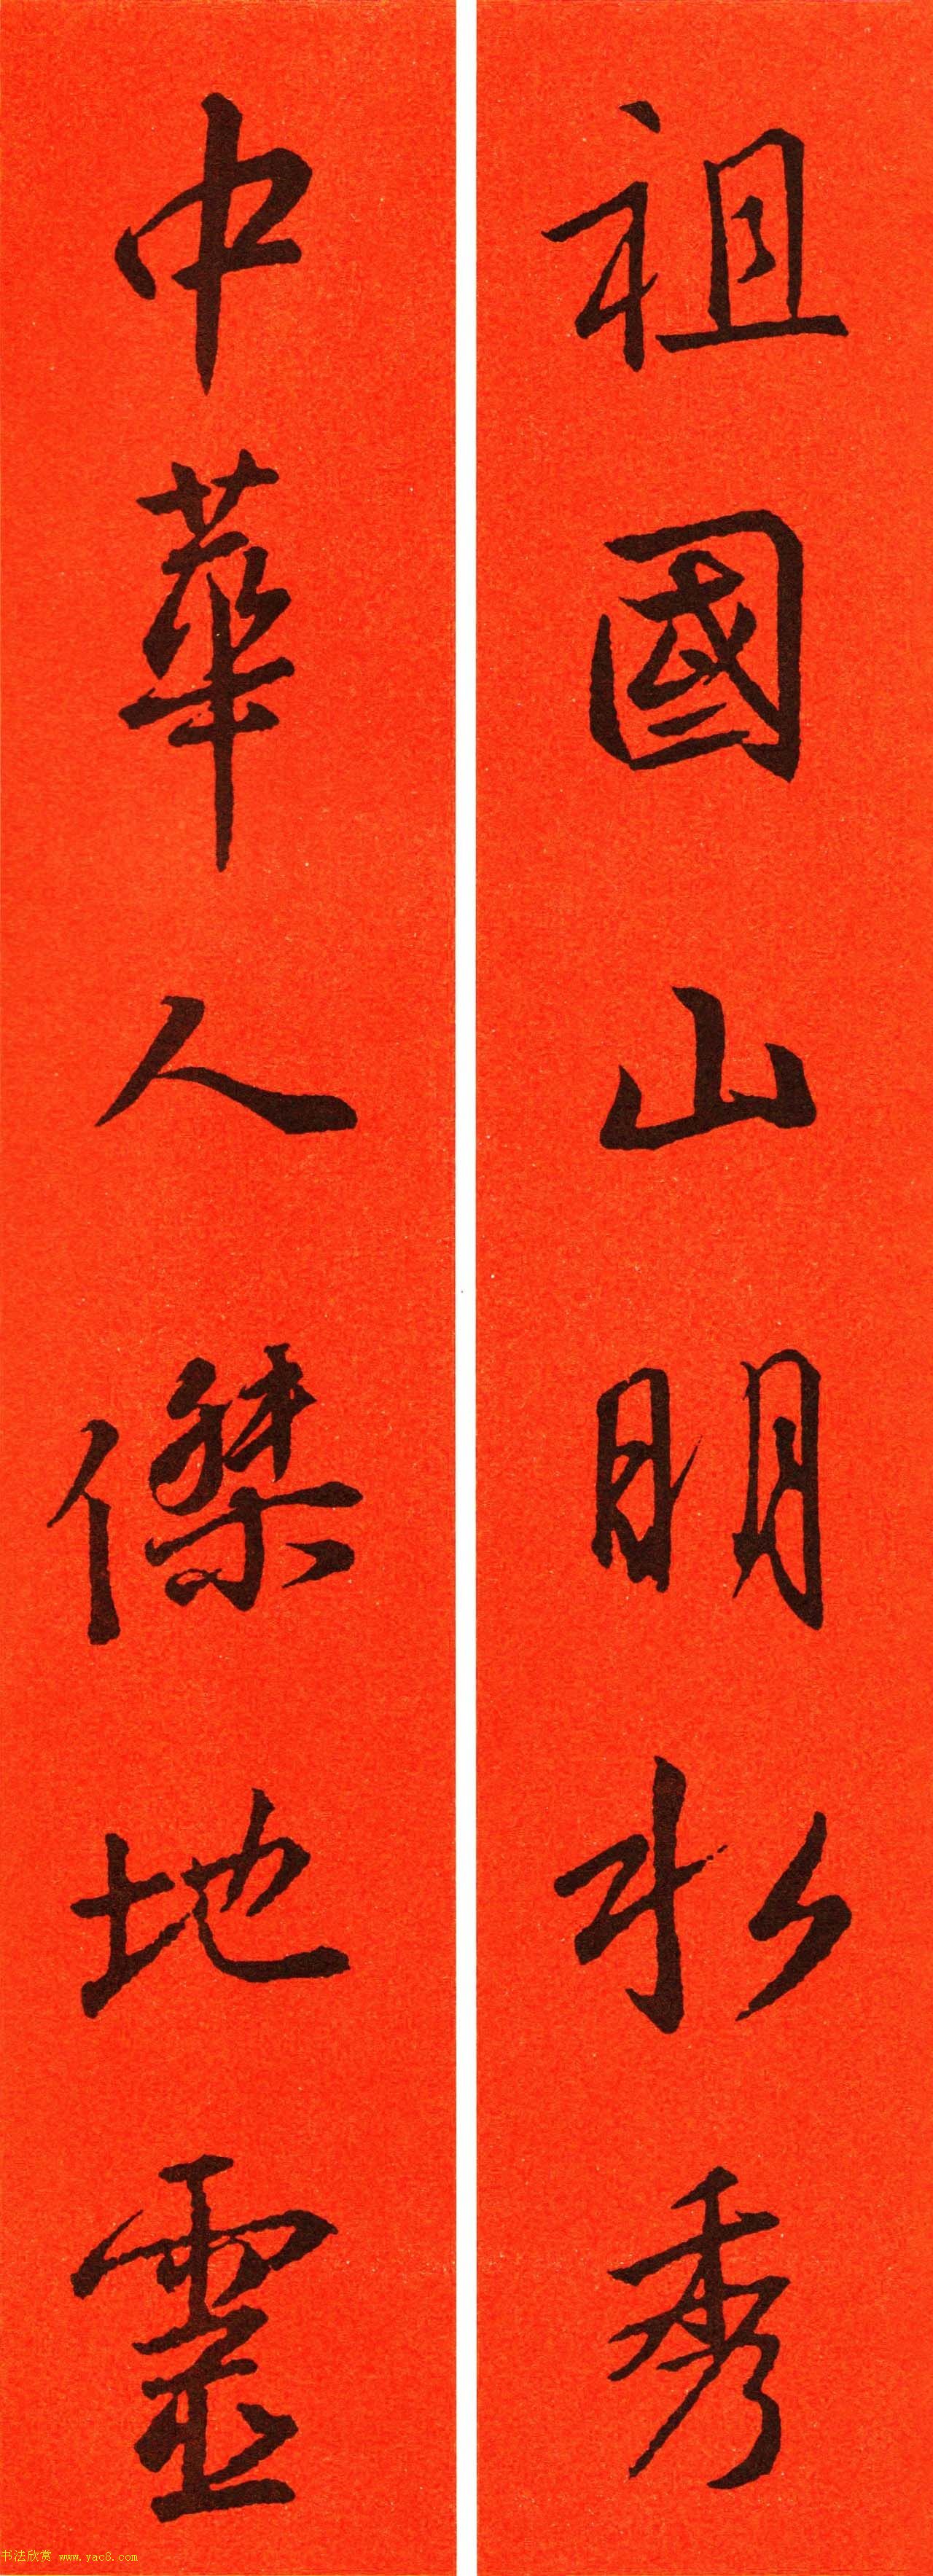 祖國山明水秀
中華人傑地靈
书法欣赏 www.yac8.com